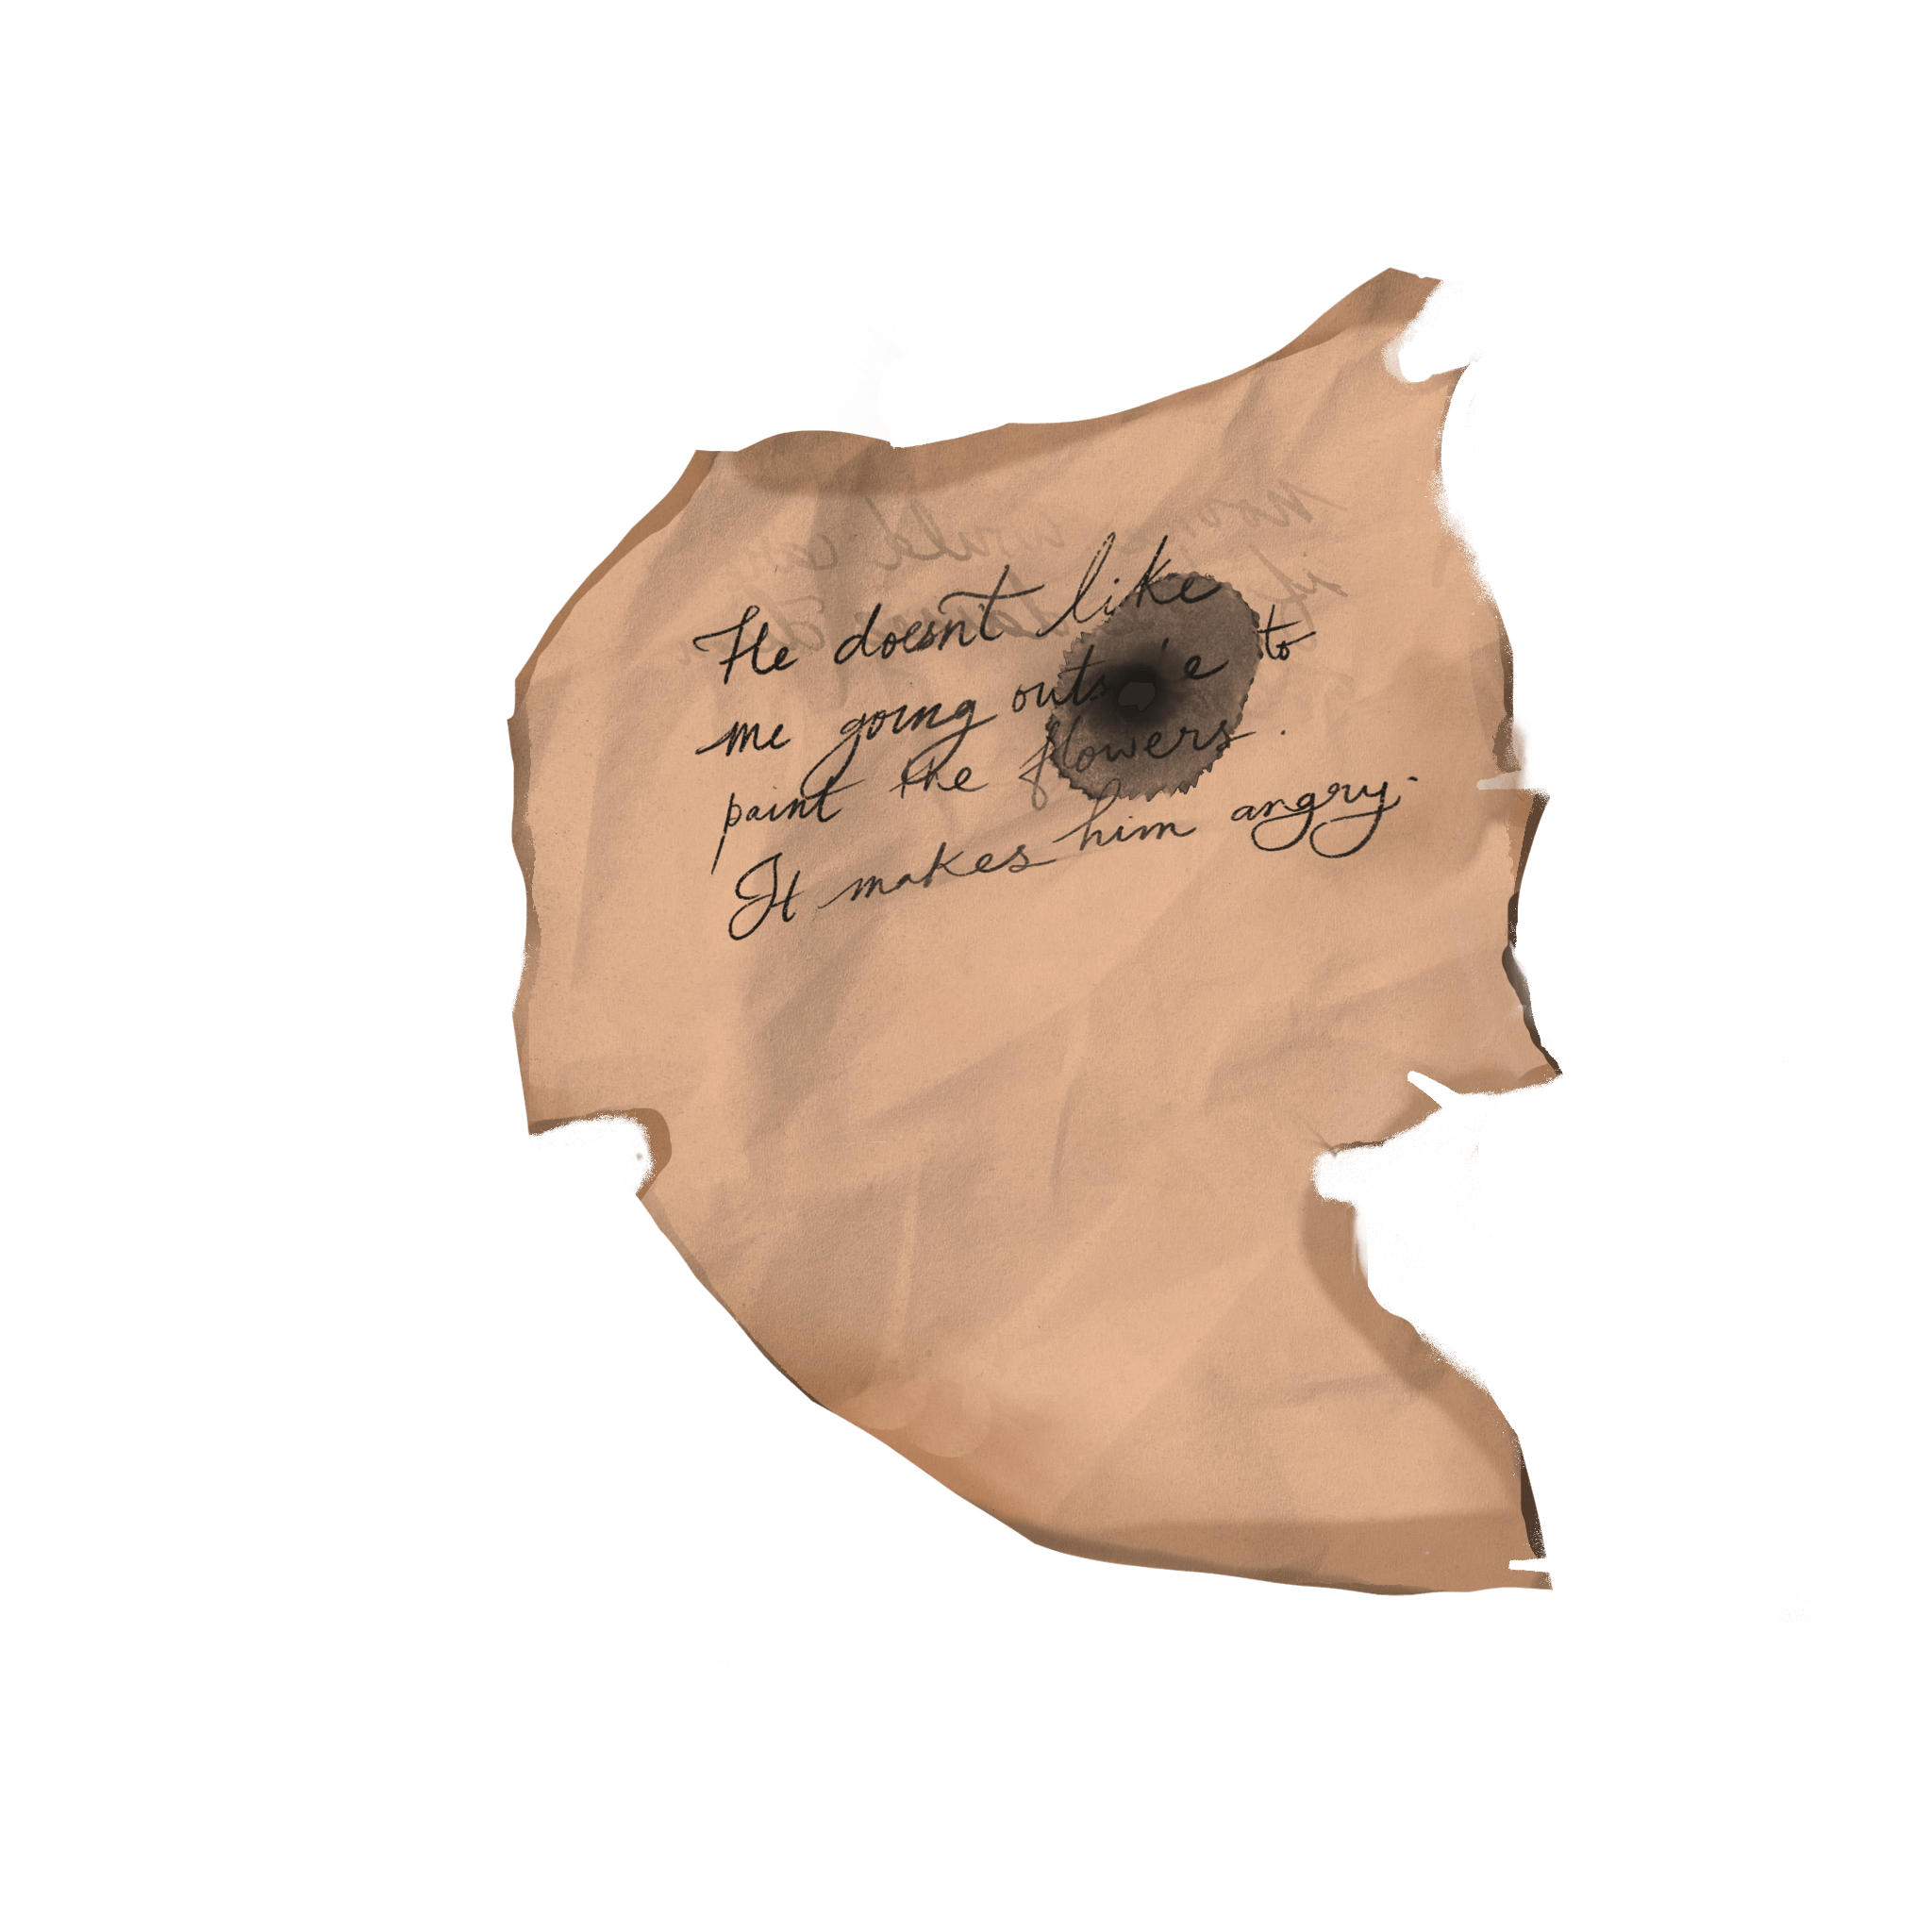 He doesn't like
me going outside to
paint the flowers.
It makes him angry.
would
if